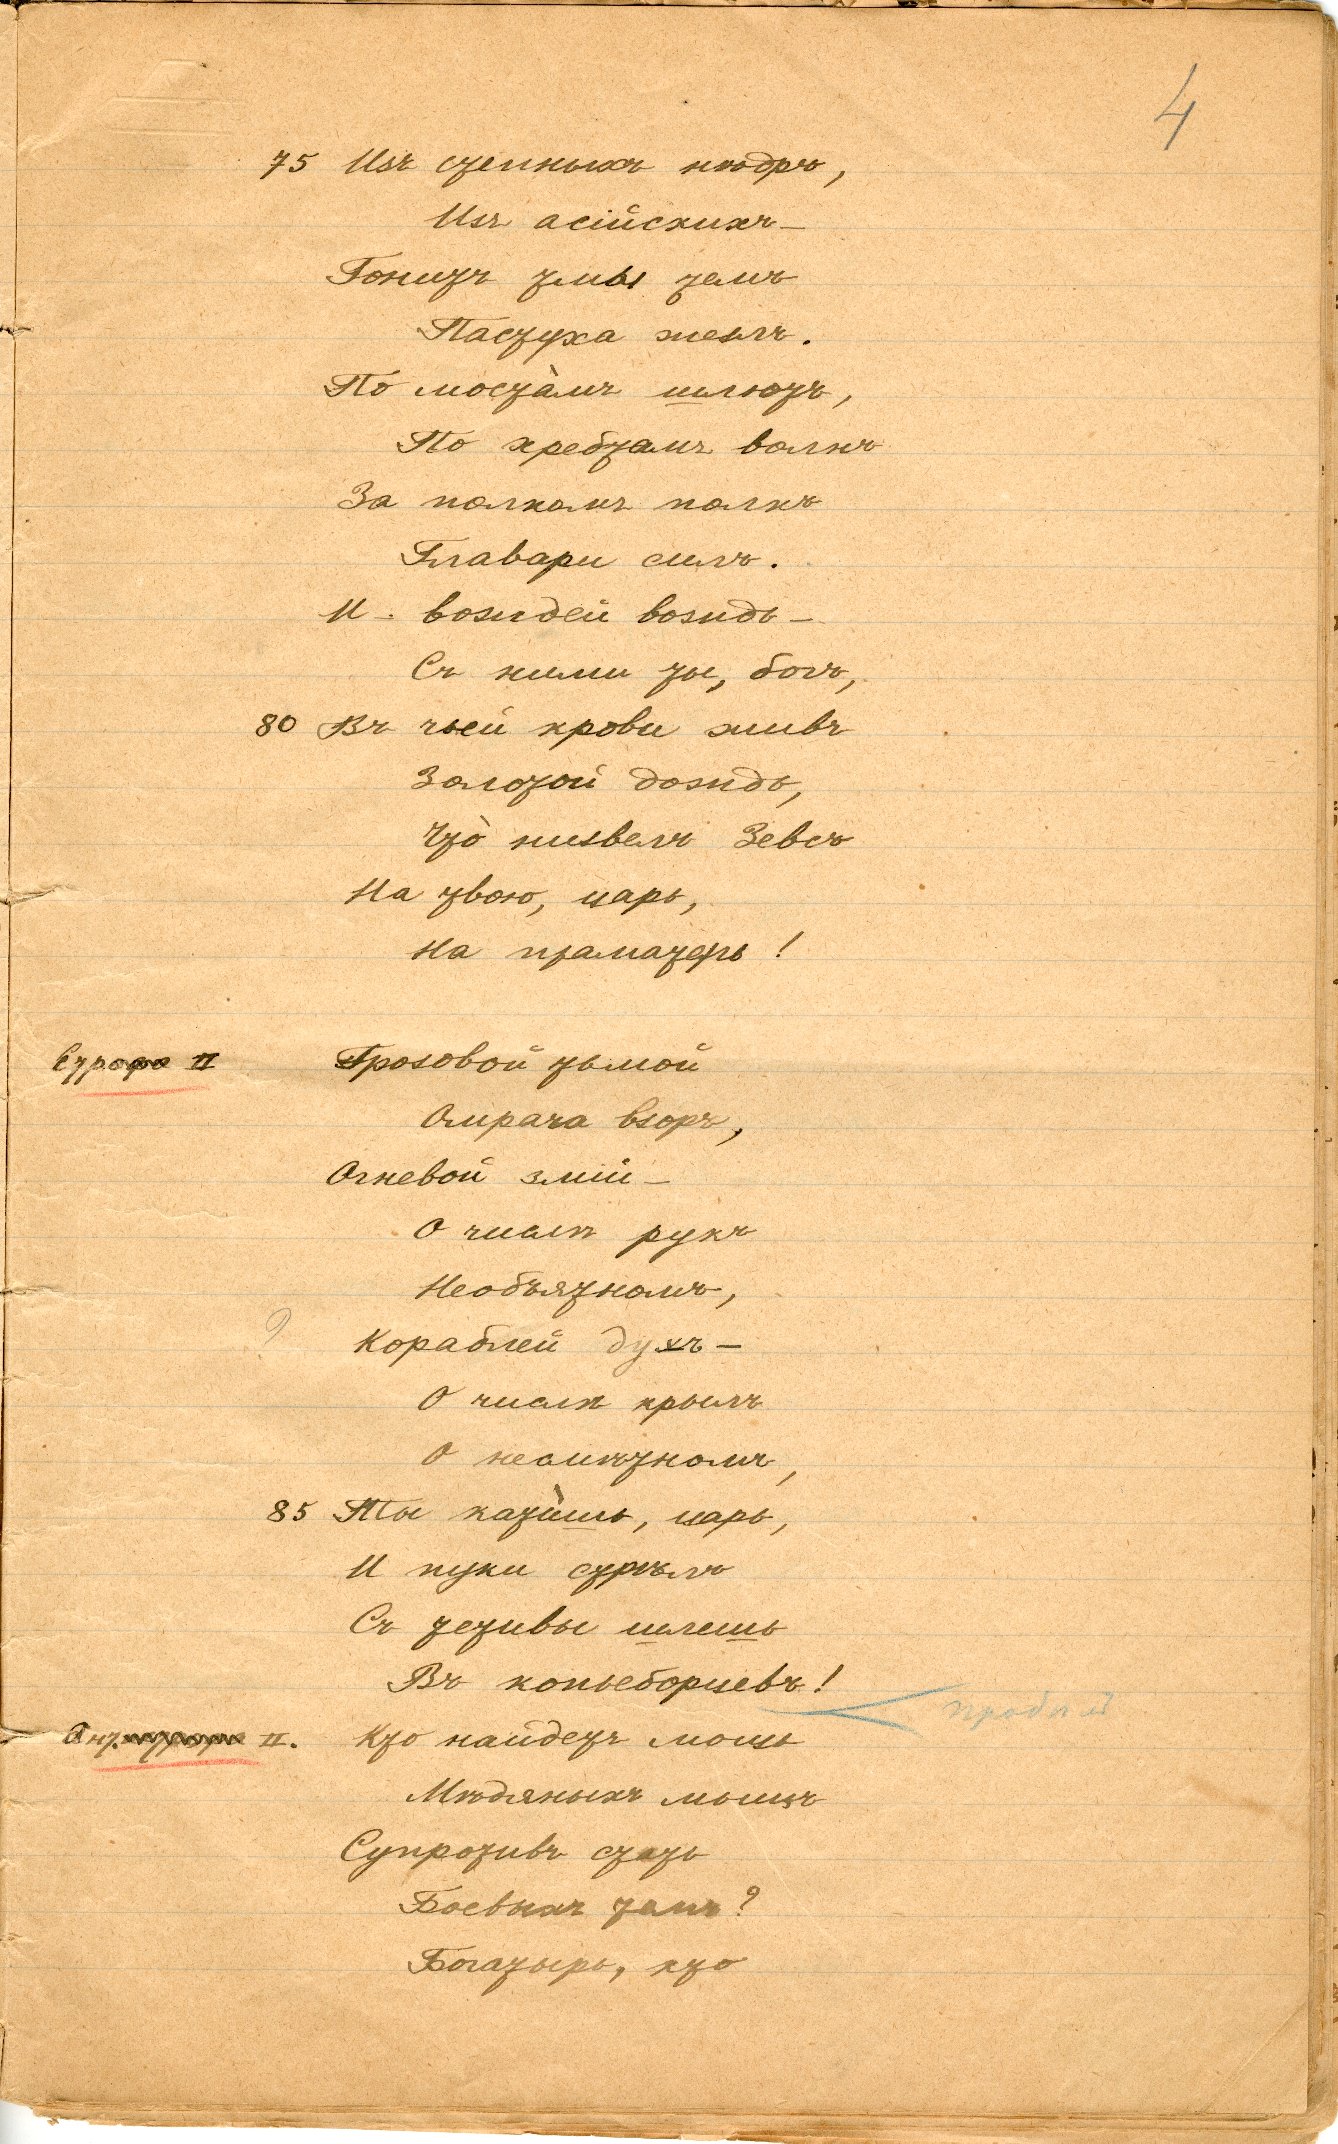 4
75 Изъ степныхъ нѣдръ,
Изъ асійскихъ –
Гонитъ тьмы темъ
Пастуха жезлъ.
По мостàмъ шлютъ,
По хребтамъ волнъ
За полкомъ полкъ
Главари силъ.
И – вождей вождь –
Съ ними ты, богъ,
80 Въ чьей крови живъ
Золотой дождь,
Чтò низвелъ Зевсъ
На твою, царь,
На праматерь!
Строфа II Грозовой тьмой
Омрача взоръ,
Огневой змій –
О числѣ рукъ
Необъятномъ,
Кораблей духъ –
О числѣ крылъ
О несмѣтномъ,
85 Ты катѝшь, царь,
И туки стрѣлъ
Съ тетивы шлешь
Въ копьеборцевъ!
пробѣл
Ант. II. Кто найдетъ мощь
Мѣдяныхъ мышцъ
Супротивъ стать
Боевыхъ темъ?
Богатырь, кто